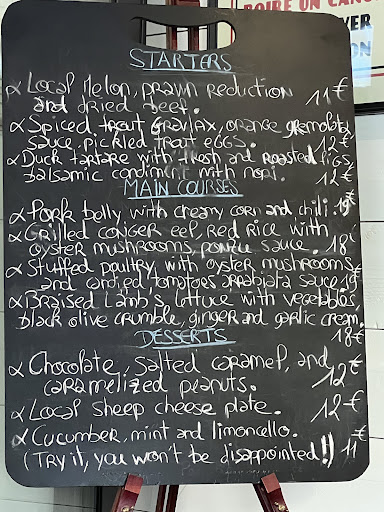 BOIRE UN CANON
STARTERS
α Local Melon, prawn reduction
and dried beef. 11€
α Spiced trout Gravlax, orange gremolata
sauce, pickled trout eggs. 12€
α Duck tartare with fresh and roasted figs
balsamic condiment with nori. 12€
MAIN COURSES
α Pork belly with creamy corn and chili. 19€
α Grilled conger eel, red rice with
oyster mushrooms, ponzu sauce. 18€
α Stuffed poultry with oyster mushrooms
and confied tomatoes arrabiata sauce 19€
α Braised lamb's lettuce with vegetables,
black olive crumble, ginger and garlic cream.
18€
DESSERTS
α Chocolate, salted caramel, and
caramelized peanuts. 12€
α Local sheep cheese plate. 12€
α Cucumber, mint and limoncello.
(Try it, you won't be disappointed!!) 11€